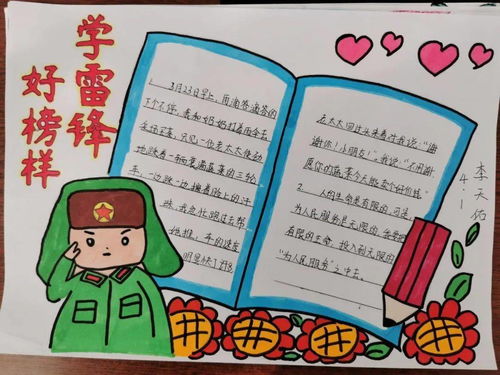 学雷锋
好榜样
1. 3月23日早上,雨滴答滴答的
下个不停,我和奶奶打着雨伞去
菜场买菜,只见一位老太太使劲
地跟着一辆重满蔬菜的三轮
车,一边跟一边擦着脸上的汗
珠,我急忙跑过去帮
她推,车的速度
明显快了许多
老太太回过头来看对我说:“谢
谢你!小朋友!”,我说:“不用谢
愿你的蔬菜今天能卖个好价钱”
2. 人的生命是有限的,可是,
为人民服务是无限的,我要把
有限的生命,投入到无限的
“为人民服务”之中去。
4.1
李天佑